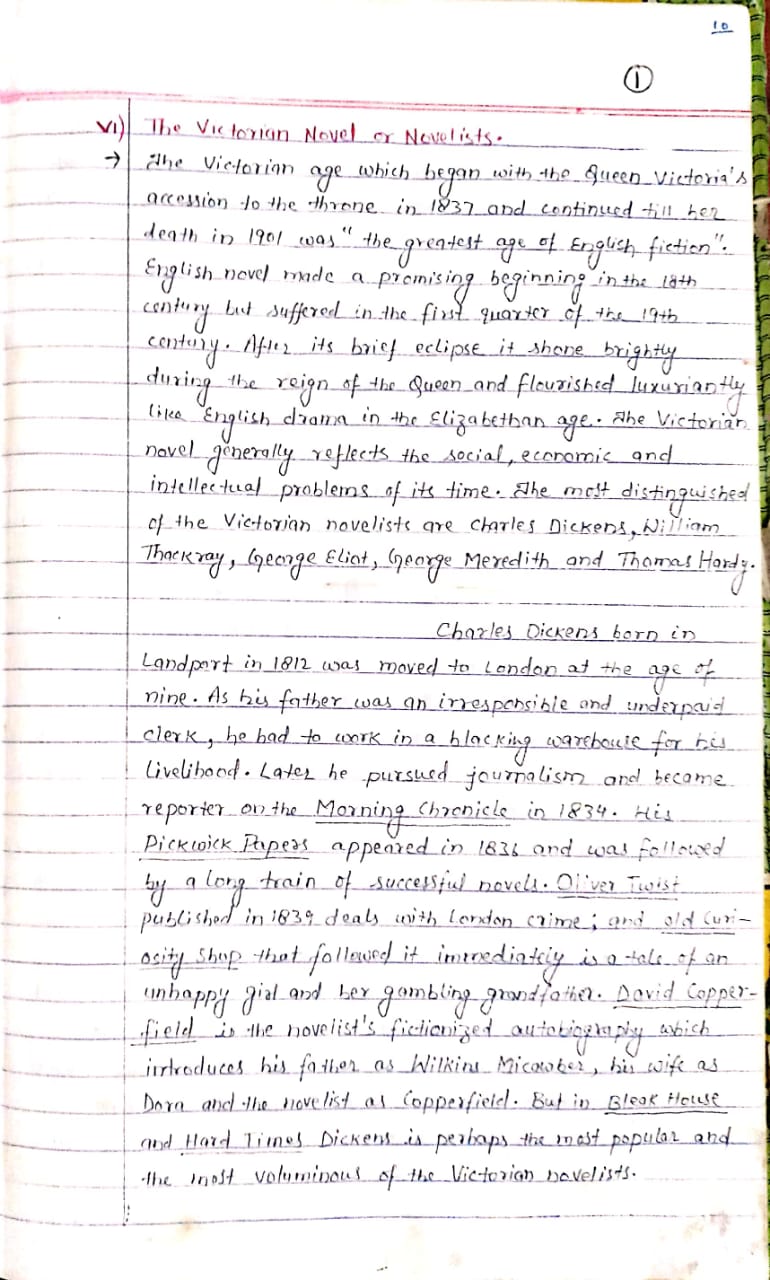 10
1
VI) The Victorian Novel or Novelists.
→ The Victorian age which began with the Queen Victoria's
accession to the throne in 1837 and continued till her
death in 1901 was "the greatest age of English fiction".
English novel made a promising beginning in the 18th
century but suffered in the first quarter of the 19th
century. After its brief eclipse it shone brightly
during the reign of the Queen and flourished luxuriantly
like English drama in the Elizabethan age. The Victorian
novel generally reflects the social, economic and
intellectual problems of its time. The most distinguished
of the Victorian novelists are Charles Dickens, William
Thackray, George Eliot, George Meredith and Thomas Hardy.
Charles Dickens born in
Landport in 1812 was moved to London at the age of
nine. As his father was an irresponsible and underpaid
clerk, he had to work in a blacking warehouse for his
livelihood. Later he pursued journalism and became
reporter on the Morning Chronicle in 1834. His
Pickwick Papers appeared in 1836 and was followed
by a long train of successful novels. Oliver Twist
published in 1839 deals with London crime; and old Curi-
osity Shop that followed it immediately is a tale of an
unhappy girl and her gambling grandfather. David Copper-
field is the novelist's fictionized autobiography which
introduces his father as Wilkins Micawber, his wife as
Dora and the novelist as Copperfield. But in Bleak House
and Hard Times Dickens is perhaps the most popular and
the most voluminous of the Victorian novelists.